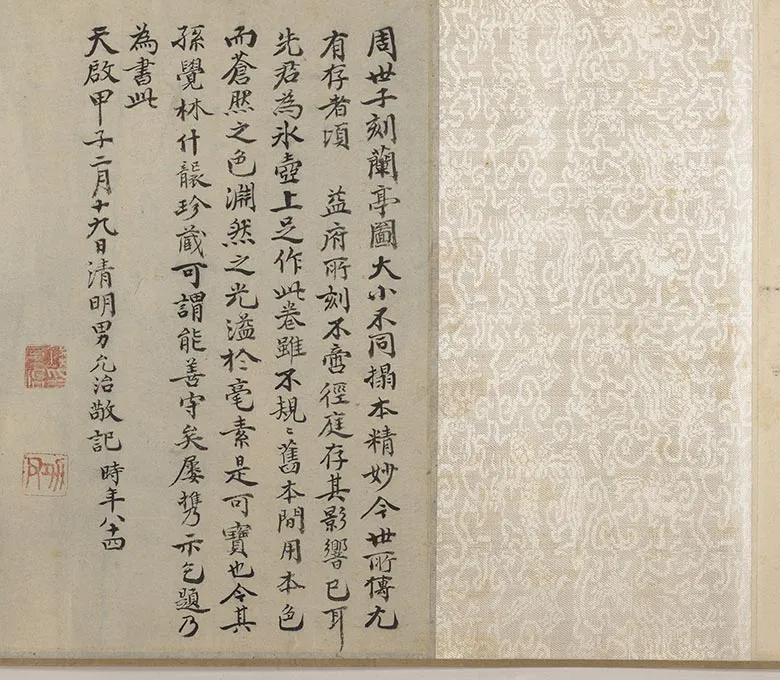 周世子刻蘭亭圖大小不同搨本精妙今世所傳尤
有存者頃 益府所刻不啻徑庭存其影響已耳
先君為氷壺上足作此卷雖不規〻舊本間用本色
而蒼然之色淵然之光溢於毫素是可寶也今其
孫覺林什襲珍藏可謂能善守矣屢攜示乞題乃
為書此
天啟甲子二月十九日清明男允治敬記 時年八十四